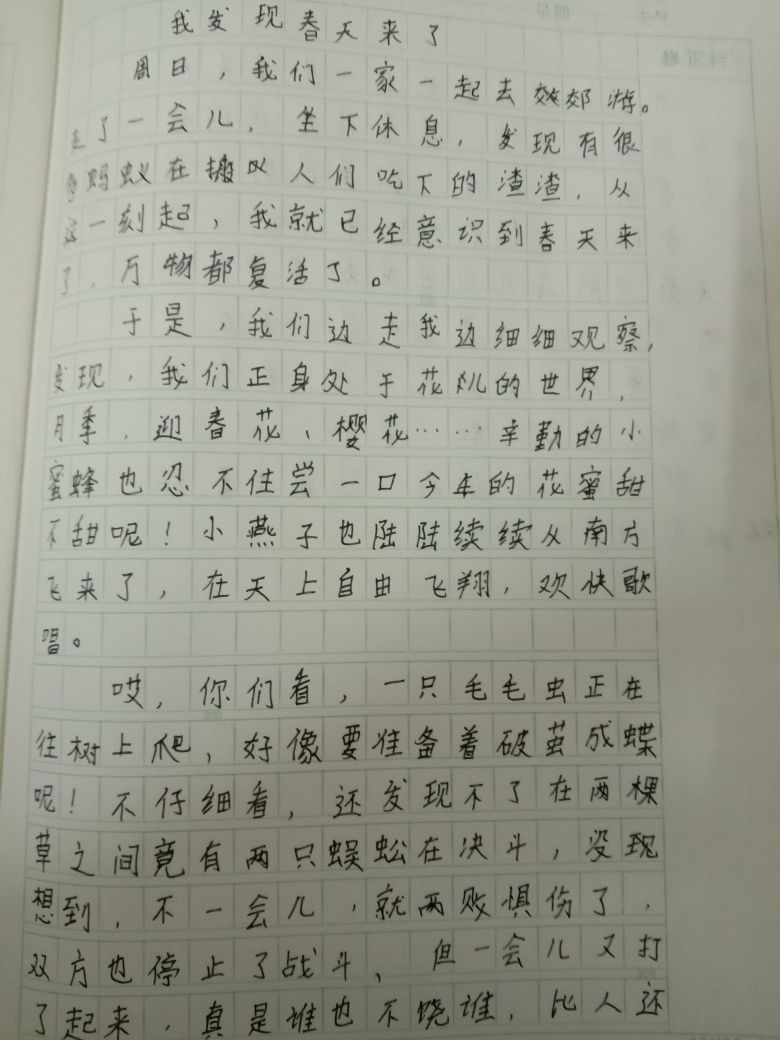 我发现春天来了
周日，我们一家一起去郊游。
走了一会儿，坐下休息，发现有很
多蚂蚁在搬人们吃下的渣渣，从
这一刻起，我就已经意识到春天来
了，万物都复活了。
于是，我们边走我边细细观察，
发现，我们正身处于花儿的世界，
月季，迎春花、樱花……辛勤的小
蜜蜂也忍不住尝一口今年的花蜜甜
不甜呢！小燕子也陆陆续续从南方
飞来了，在天上自由飞翔，欢快歌
唱。
哎，你们看，一只毛毛虫正在
往树上爬，好像要准备着破茧成蝶
呢！不仔细看，还发现不了在两棵
草之间竟有两只蜈蚣在决斗，没现
想到，不一会儿，就两败惧伤了，
双方也停止了战斗，但一会儿又打
了起来，真是谁也不饶谁，比人还